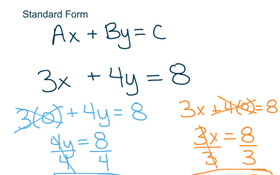 Standard Form
Ax + By = C
3x + 4y = 8
3(0) + 4y = 8
4y = 8
4 4
3x + 4(0) = 8
3x = 8
3 3